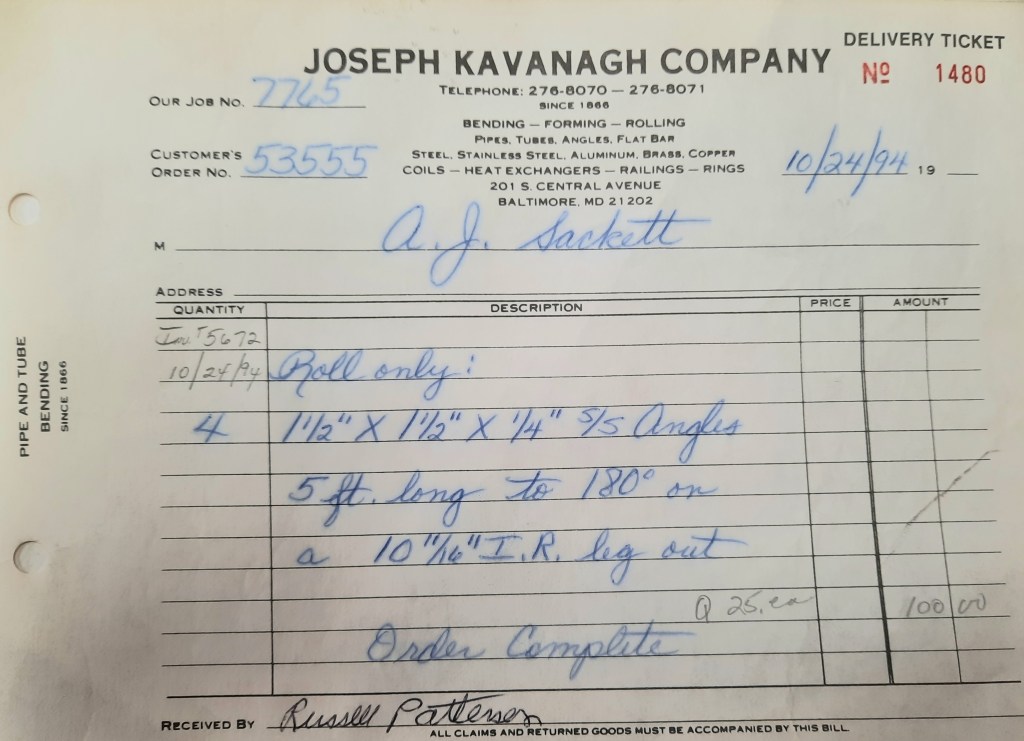 DELIVERY TICKET
JOSEPH KAVANAGH COMPANY
Nº 1480
TELEPHONE: 276-8070 — 276-8071
SINCE 1866
OUR JOB NO. 7765
BENDING — FORMING — ROLLING
PIPES, TUBES, ANGLES, FLAT BAR
CUSTOMER'S ORDER NO. 53555
STEEL, STAINLESS STEEL, ALUMINUM, BRASS, COPPER
COILS — HEAT EXCHANGERS — RAILINGS — RINGS
10/24/94 19
201 S. CENTRAL AVENUE
BALTIMORE, MD 21202
M A. J. Sackett
ADDRESS
QUANTITY DESCRIPTION PRICE AMOUNT
5672
10/24/94 Roll only:
4 1 1/2" X 1 1/2" X 1/4" S/S Angles
5 ft. long to 180° on
a 10 11/16" I.R. leg out
25. ea 100 00
Order Complete
RECEIVED BY Russell Patterson
ALL CLAIMS AND RETURNED GOODS MUST BE ACCOMPANIED BY THIS BILL
PIPE AND TUBE
BENDING
SINCE 1866